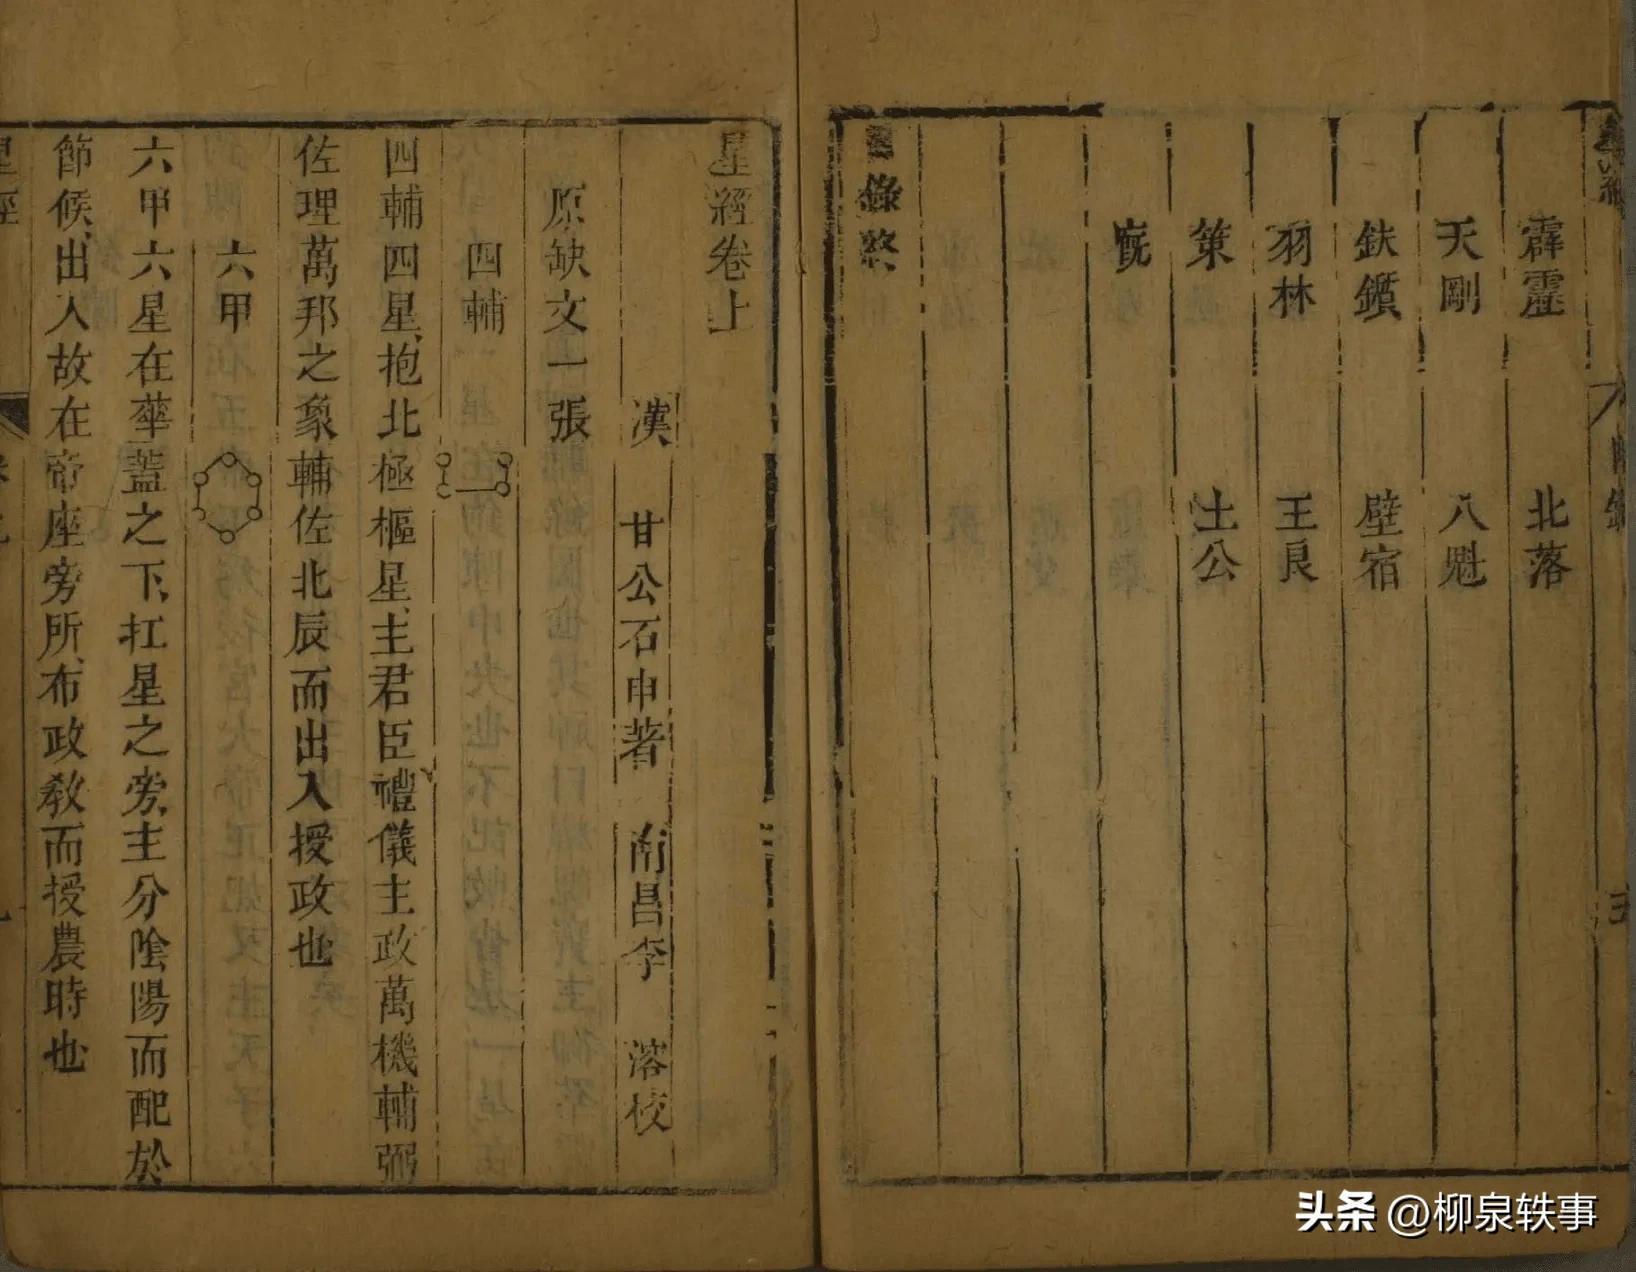 霹靂 北落
天剛 八魁
鈇鑕 壁宿
羽林 王良
策 土公
廐
目錄終
星經卷上
漢 甘公石申著 南昌李 溶校
原缺文一張
四輔
四輔四星抱北極樞星主君臣禮儀主政萬機輔弼
佐理萬邦之象輔佐北辰而出入授政也
六甲
六甲六星在華蓋之下扛星之旁主分陰陽而配於
節候出入故在帝座旁所布政教而授農時也
星經
头条 @柳泉轶事